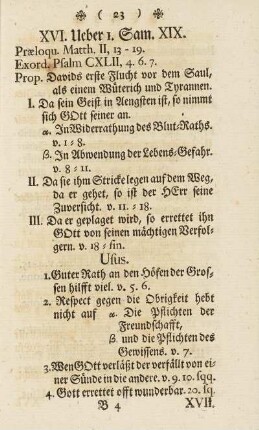 * ( 23 ) *
XVI. Ueber 1. Sam. XIX.
Præloqu. Matth. II, 13 - 19.
Exord. Psalm CXLII, 4. 6. 7.
Prop. Davids erste Flucht vor dem Saul,
als einem Wüterich und Tyrannen.
I. Da sein Geist in Aengsten ist, so nimmt
sich GOtt seiner an.
α. In Widerrathung des Blut-Raths.
v. 1 - 8.
β. In Abwendung der Lebens-Gefahr.
v. 8 - 11.
II. Da sie ihm Stricke legen auf dem Weg,
da er gehet, so ist der HErr seine
Zuversicht. v. 11. - 18.
III. Da er geplaget wird, so errettet ihn
GOtt von seinen mächtigen Verfol-
gern. v. 18 - fin.
Usus.
1. Guter Rath an den Höfen der Gros-
sen hilfft viel. v. 5. 6.
2. Respect gegen die Obrigkeit hebt
nicht auf α. Die Pflichten der
Freundschafft,
β und die Pflichten des
Gewissens. v. 7.
3. Wen GOtt verläßt der verfällt von ei-
ner Sünde in die andere. v. 9. 10. sqq.
4. Gott errettet offt wunderbar. 20. sq.
B 4 XVII.